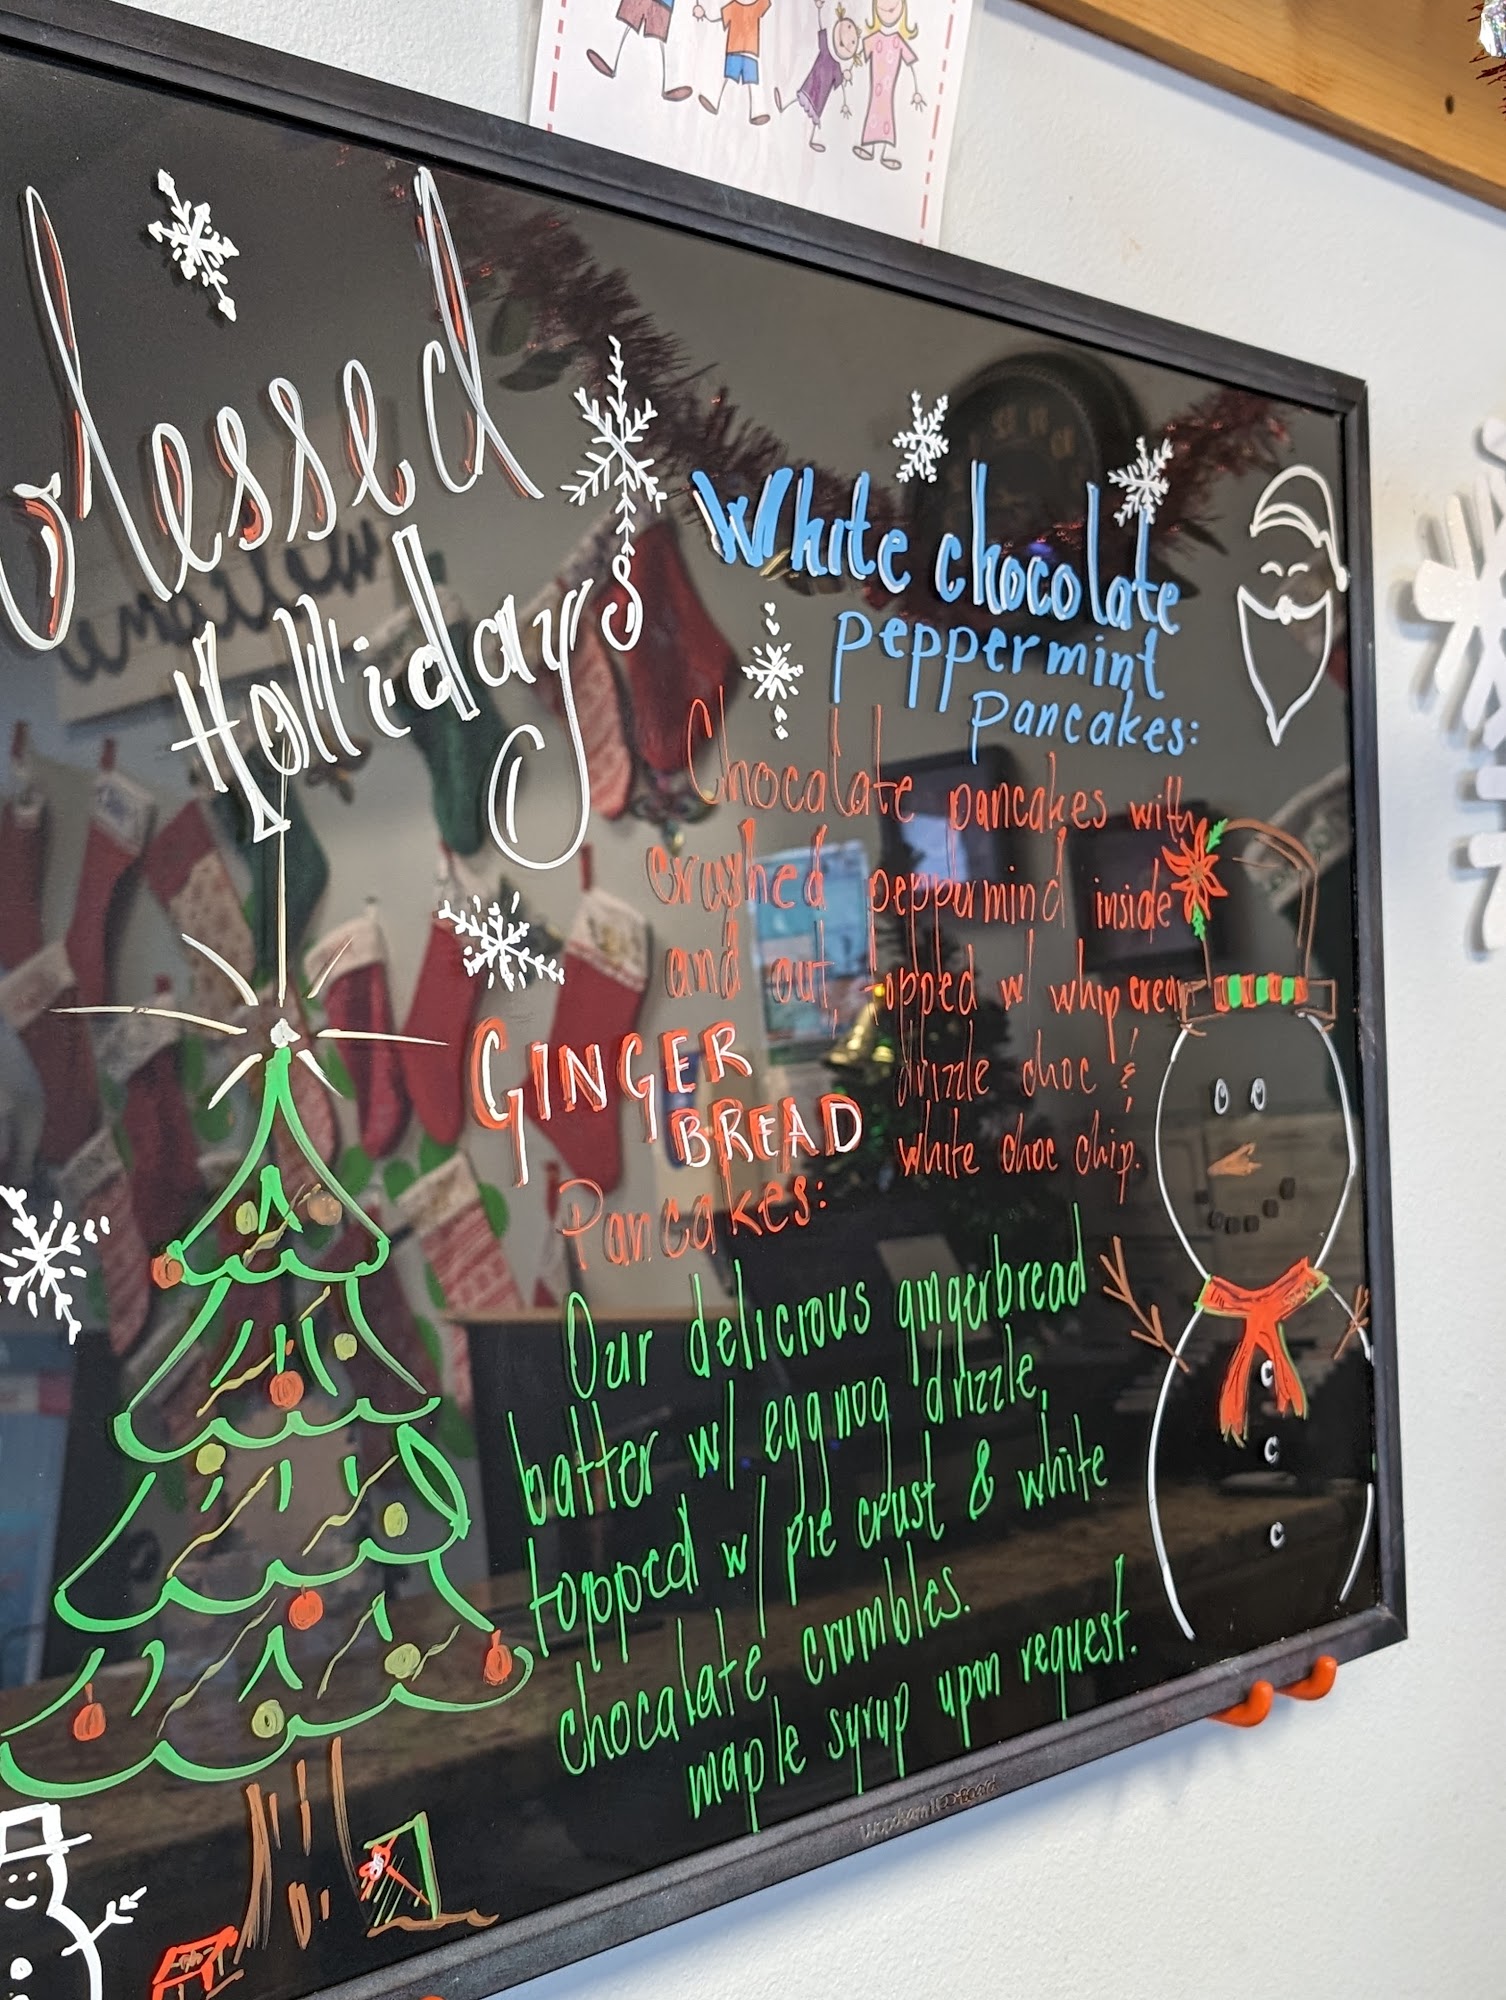 Blessed
Hollidays
White chocolate
peppermint
pancakes:
Chocalate pancakes with
crushed peppermind inside
and out, topped w/ whip cream
drizzle choc &
white choc chip.
GINGER
BREAD
Pancakes:
Our delicious gingerbread
batter w/ eggnog drizzle,
topped w/ pie crust & white
chocolate crumbles.
maple syrup upon request.